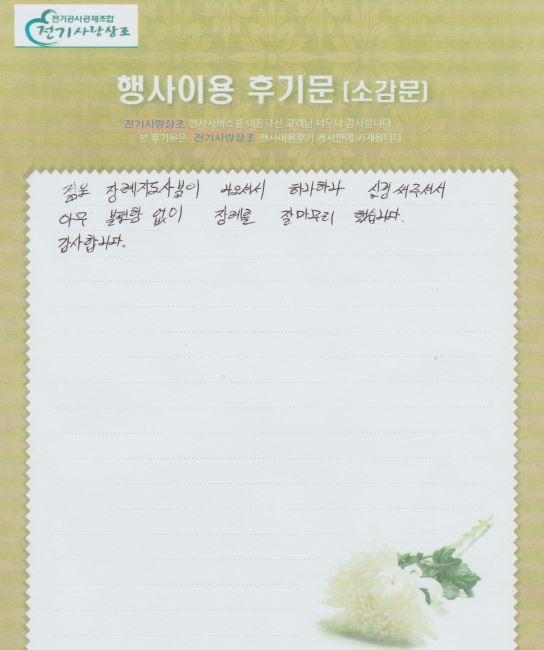 전기공사공제조합
전기사랑상조
행사이용 후기문 [소감문]
전기사랑상조 행사서비스를 이용하신 고객님 너무나 감사합니다
본 후기문은 전기사랑상조 행사이용후기 게시판에 기재됩니다.
젊은 장례지도사분이 나오셔서 하나하나 신경써주셔서
아무 불편함 없이 장례를 잘마무리 했습니다.
감사합니다.